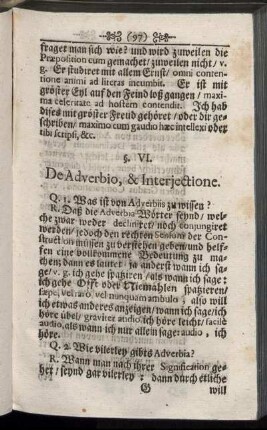 (97)
fraget man sich wie? und wird zuweilen die
Præposition cum gemachet / zuweilen nicht / v.
g. Er studiret mit allem Ernst / omni contentione
animi ad literas incumbit. Er ist mit
gröster Eyl auf den Feind loß gangen / maxima
celeritate ad hostem contendit. Ich hab
dises mit gröster Freud gehöret / oder dir geschriben /
maximo cum gaudio hæc intellexi oder
tibi scripsi, &c.
§. VI.
De Adverbio, & Interjectione.
Q. 1. Was ist von Adverbiis zu wissen?
R. Daß die Adverbia Wörter seynd / welche
zwar weder declinitet / noch conjungiret
werden / jedoch den rechten Sensum der Construction
müssen zu verstehen geben und helffen
eine vollkommene Bedeutung zu machen;
dann es lautet ja anderst wann ich sage /
v. g. ich gehe spatzieren / als wann ich sage:
ich gehe Offt oder Niemahlen spatzieren /
sæpe, vel raro, vel nunquam ambulo, also will
ich etwas anderes anzeigen / wann ich sage / ich
höre übel / graviter audio, ich höre leicht / facile
audio, als wann ich nur allein sage: audio, ich
höre.
Q. 2. Wie vilerley gibts Adverbia?
R. Wann man nach ihrer Signification gehet /
seynd gar vilerley: dann durch etliche
G will